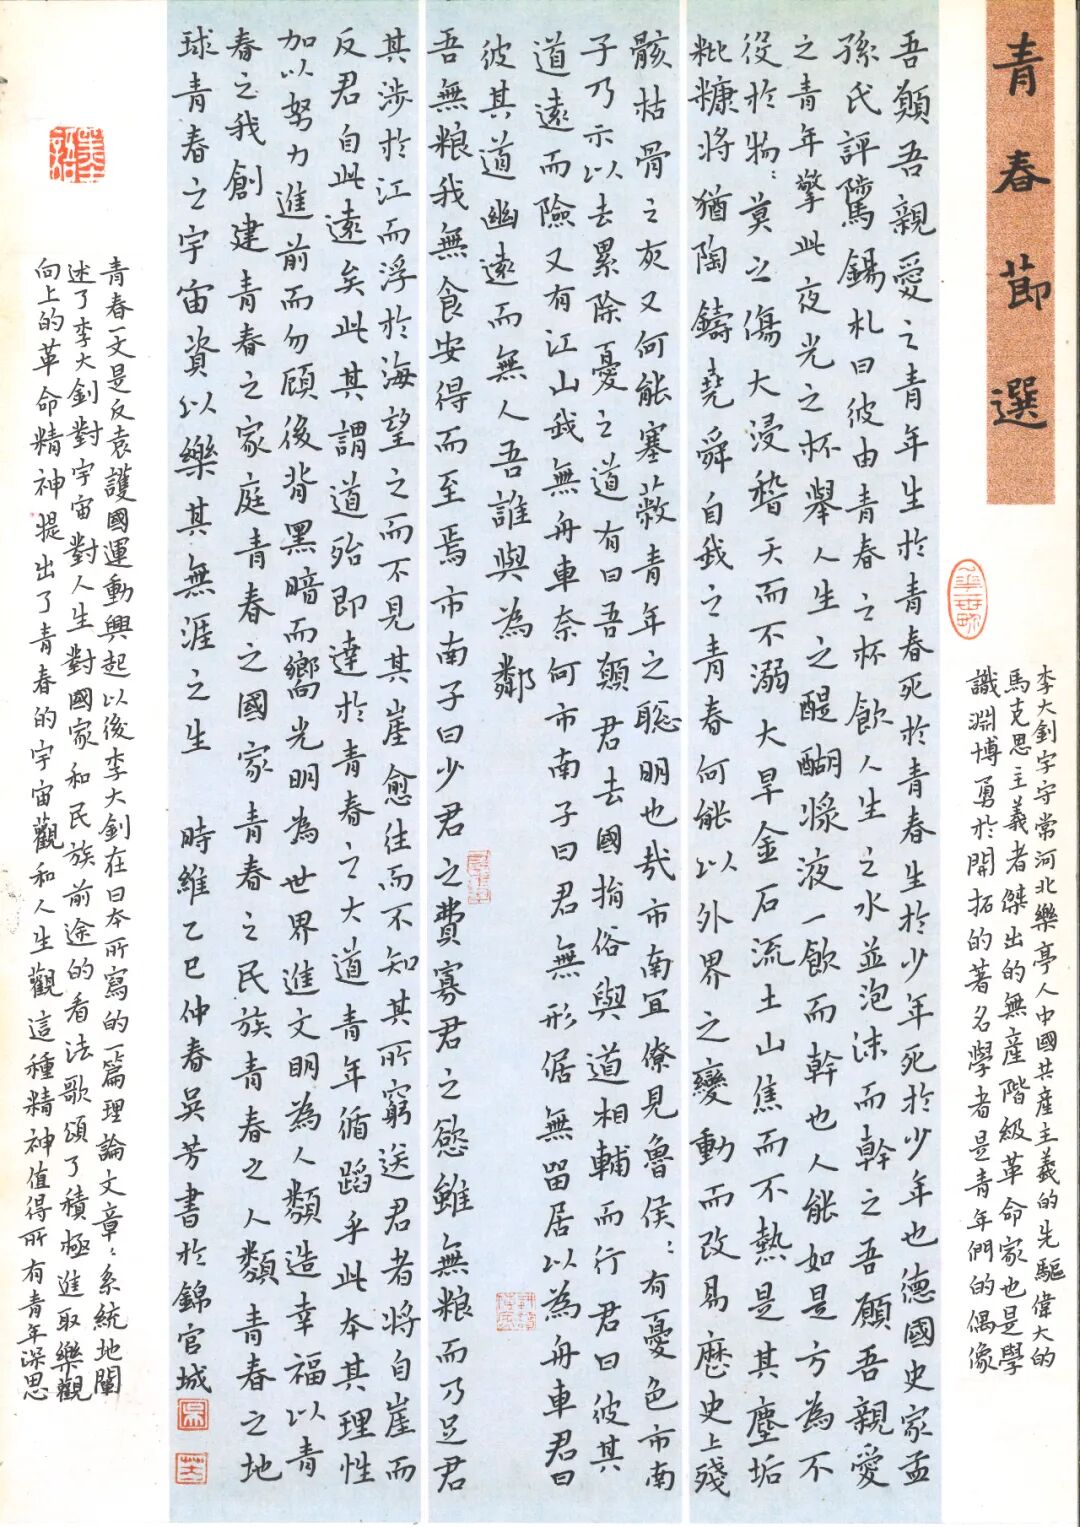 青春節選
李大釗字守常河北樂亭人中國共產主義的先驅偉大的
馬克思主義者傑出的無產階級革命家也是學
識淵博勇於開拓的著名學者是青年們的偶像
吾願吾親愛之青年生於青春死於青春生於少年死於少年也德國史家孟
孫氏評騭錫札曰彼由青春之杯飲人生之水並泡沫而幹之吾願吾親愛
之青年擎此夜光之杯舉人生之醍醐漿液一飲而幹也人能如是方為不
役於物:莫之傷大浸稽天而不溺大旱金石流土山焦而不熱是其塵垢
粃糠將猶陶鑄堯舜自我之青春何能以外界之變動而改易歷史上殘
骸枯骨之灰又何能塞蔽青年之聪明也哉市南宜僚見魯侯:有憂色市南
子乃示以去累除憂之道有曰吾願君去國捐俗與道相輔而行君曰彼其
道遠而險又有江山我無舟車奈何市南子曰君無形倨無留居以為舟車君曰
彼其道幽遠而無人吾誰與為鄰
吾無粮我無食安得而至焉市南子曰少君之費寡君之慾雖無粮而乃足君
其涉於江而浮於海望之而不見其崖愈往而不知其所窮送君者將自崖而
反君自此遠矣此其謂道殆即達於青春之大道青年循蹈乎此本其理性
加以努力進前而勿顾後背黑暗而嚮光明為世界進文明為人類造幸福以青
春之我創建青春之家庭青春之國家青春之民族青春之人類青春之地
球青春之宇宙資以樂其無涯之生 時維乙巳仲春吳芳書於錦官城
青春一文是反袁護國運動興起以後李大釗在日本所寫的一篇理論文章:系統地闡
述了李大釗對宇宙對人生對國家和民族前途的看法歌頌了積極進取樂觀
向上的革命精神提出了青春的宇宙觀和人生觀這種精神值得所有青年深思